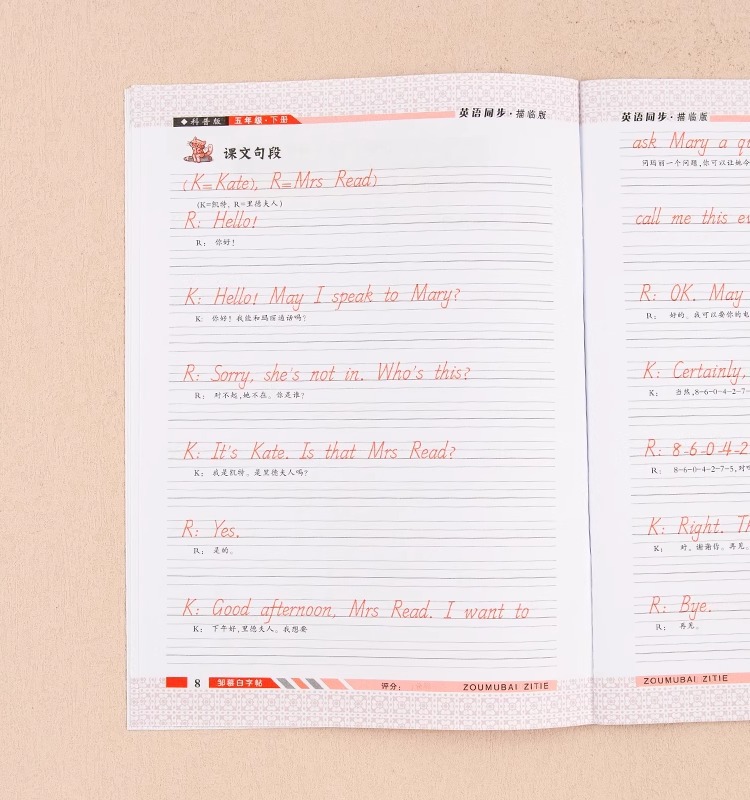 ◆科普版 五年级·下册
英语同步·描临版
课文句段
(K=Kate), R=Mrs Read)
(K=凯特, R=里德夫人)
R: Hello!
R: 你好!
K: Hello! May I speak to Mary?
K: 你好! 我能和玛丽通话吗?
R: Sorry, she's not in. Who's this?
R: 对不起,她不在。你是谁?
K: It's Kate. Is that Mrs Read?
K: 我是凯特。是里德夫人吗?
R: Yes.
R: 是的。
K: Good afternoon, Mrs Read. I want to
K: 下午好,里德夫人。我想要
8 邹慕白字帖 评分: ZOUMUBAI ZITIE
英语同步·描临版
ask Mary a
问玛丽一个问题,你可以让她
call me this
R: OK. May
R: 好的。我可以要你的
K: Certainly,
K: 当然,8-6-0-4-2-7-
R: 8-6-0-4-2
R: 8-6-0-4-2-7-5,对
K: Right.
K: 对。谢谢你。再见。
R: Bye.
R: 再见。
ZOUMUBAI ZITIE